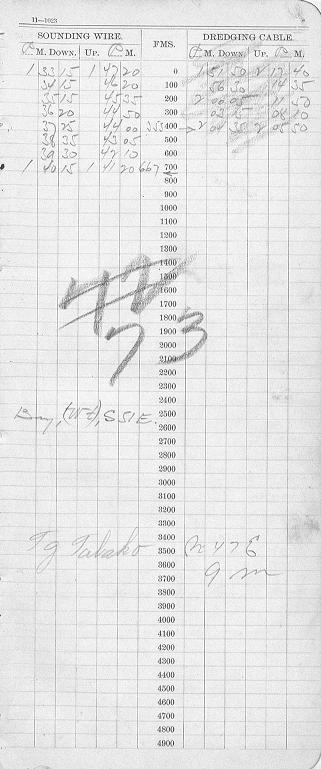 11—1023
SOUNDING WIRE. FMS. DREDGING CABLE.
P. M. DOWN. UP. P. M. P. M. DOWN. UP. P. M.
1 33 15 1 47 20 0 1 51 50 2 12 40
34 15 46 20 100 56 30 14 35
35 15 45 35 200 2 00 05 11 50
36 20 44 50 300
37 25 44 00 353 400 2 05 50
38 35 43 05 500
39 30 42 10 600
1 40 15 1 41 20 667 700
800
900
1000
1100
1200
1300
1400
1500
1600
1700
1800
1900
2000
2100
2200
2300
2400
Bry, (WE), SSIE. 2500
2600
2700
2800
2900
3000
3100
3200
3300
3400
Tg Tabako 3500 N 47 E
3600
3700 9 m
3800
3900
4000
4100
4200
4300
4400
4500
4600
4700
4800
4900
73